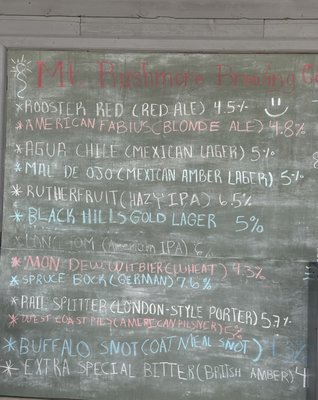 Mt. Rushmore Brewing Co
*ROOSTER RED (RED ALE) 4.5%
*AMERICAN FABIUS (BLONDE ALE) 4.8%
*AGUA CHILE (MEXICAN LAGER) 5%
*MAL DE OJO (MEXICAN AMBER LAGER) 5%
*RUTHERFRUIT (HAZY IPA) 6.5%
*BLACK HILLS GOLD LAGER 5%
(American IPA) 6
*MON DEW WITBIER (WHEAT) 4.3%
*SPRUCE BOCK (GERMAN) 7.6%
*RAIL SPLITTER (LONDON-STYLE PORTER) 5.7%
*WEST COAST PILS (AMERICAN PILSNER) 5%
*BUFFALO SNOT (OATMEAL SNOT)
*EXTRA SPECIAL BITTER (BRITISH AMBER) 4